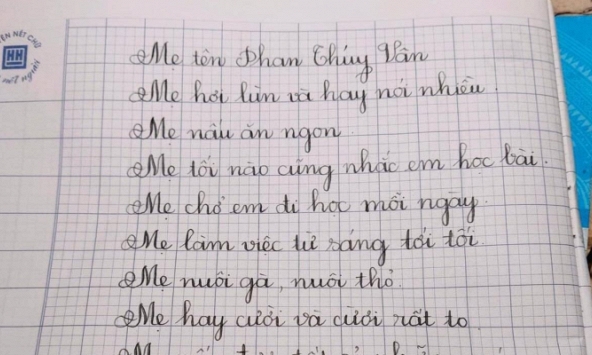 ÈN NÉT CHỮ
HH
nết người
Mẹ tên Phan Thúy Vân
Mẹ hơi lùn và hay nói nhiều.
Mẹ nấu ăn ngon
Mẹ tối nào cũng nhắc em học bài.
Mẹ chở em đi học mỗi ngày.
Mẹ làm việc từ sáng tới tối.
Mẹ nuôi gà, nuôi thỏ.
Mẹ hay cười và cười rất to